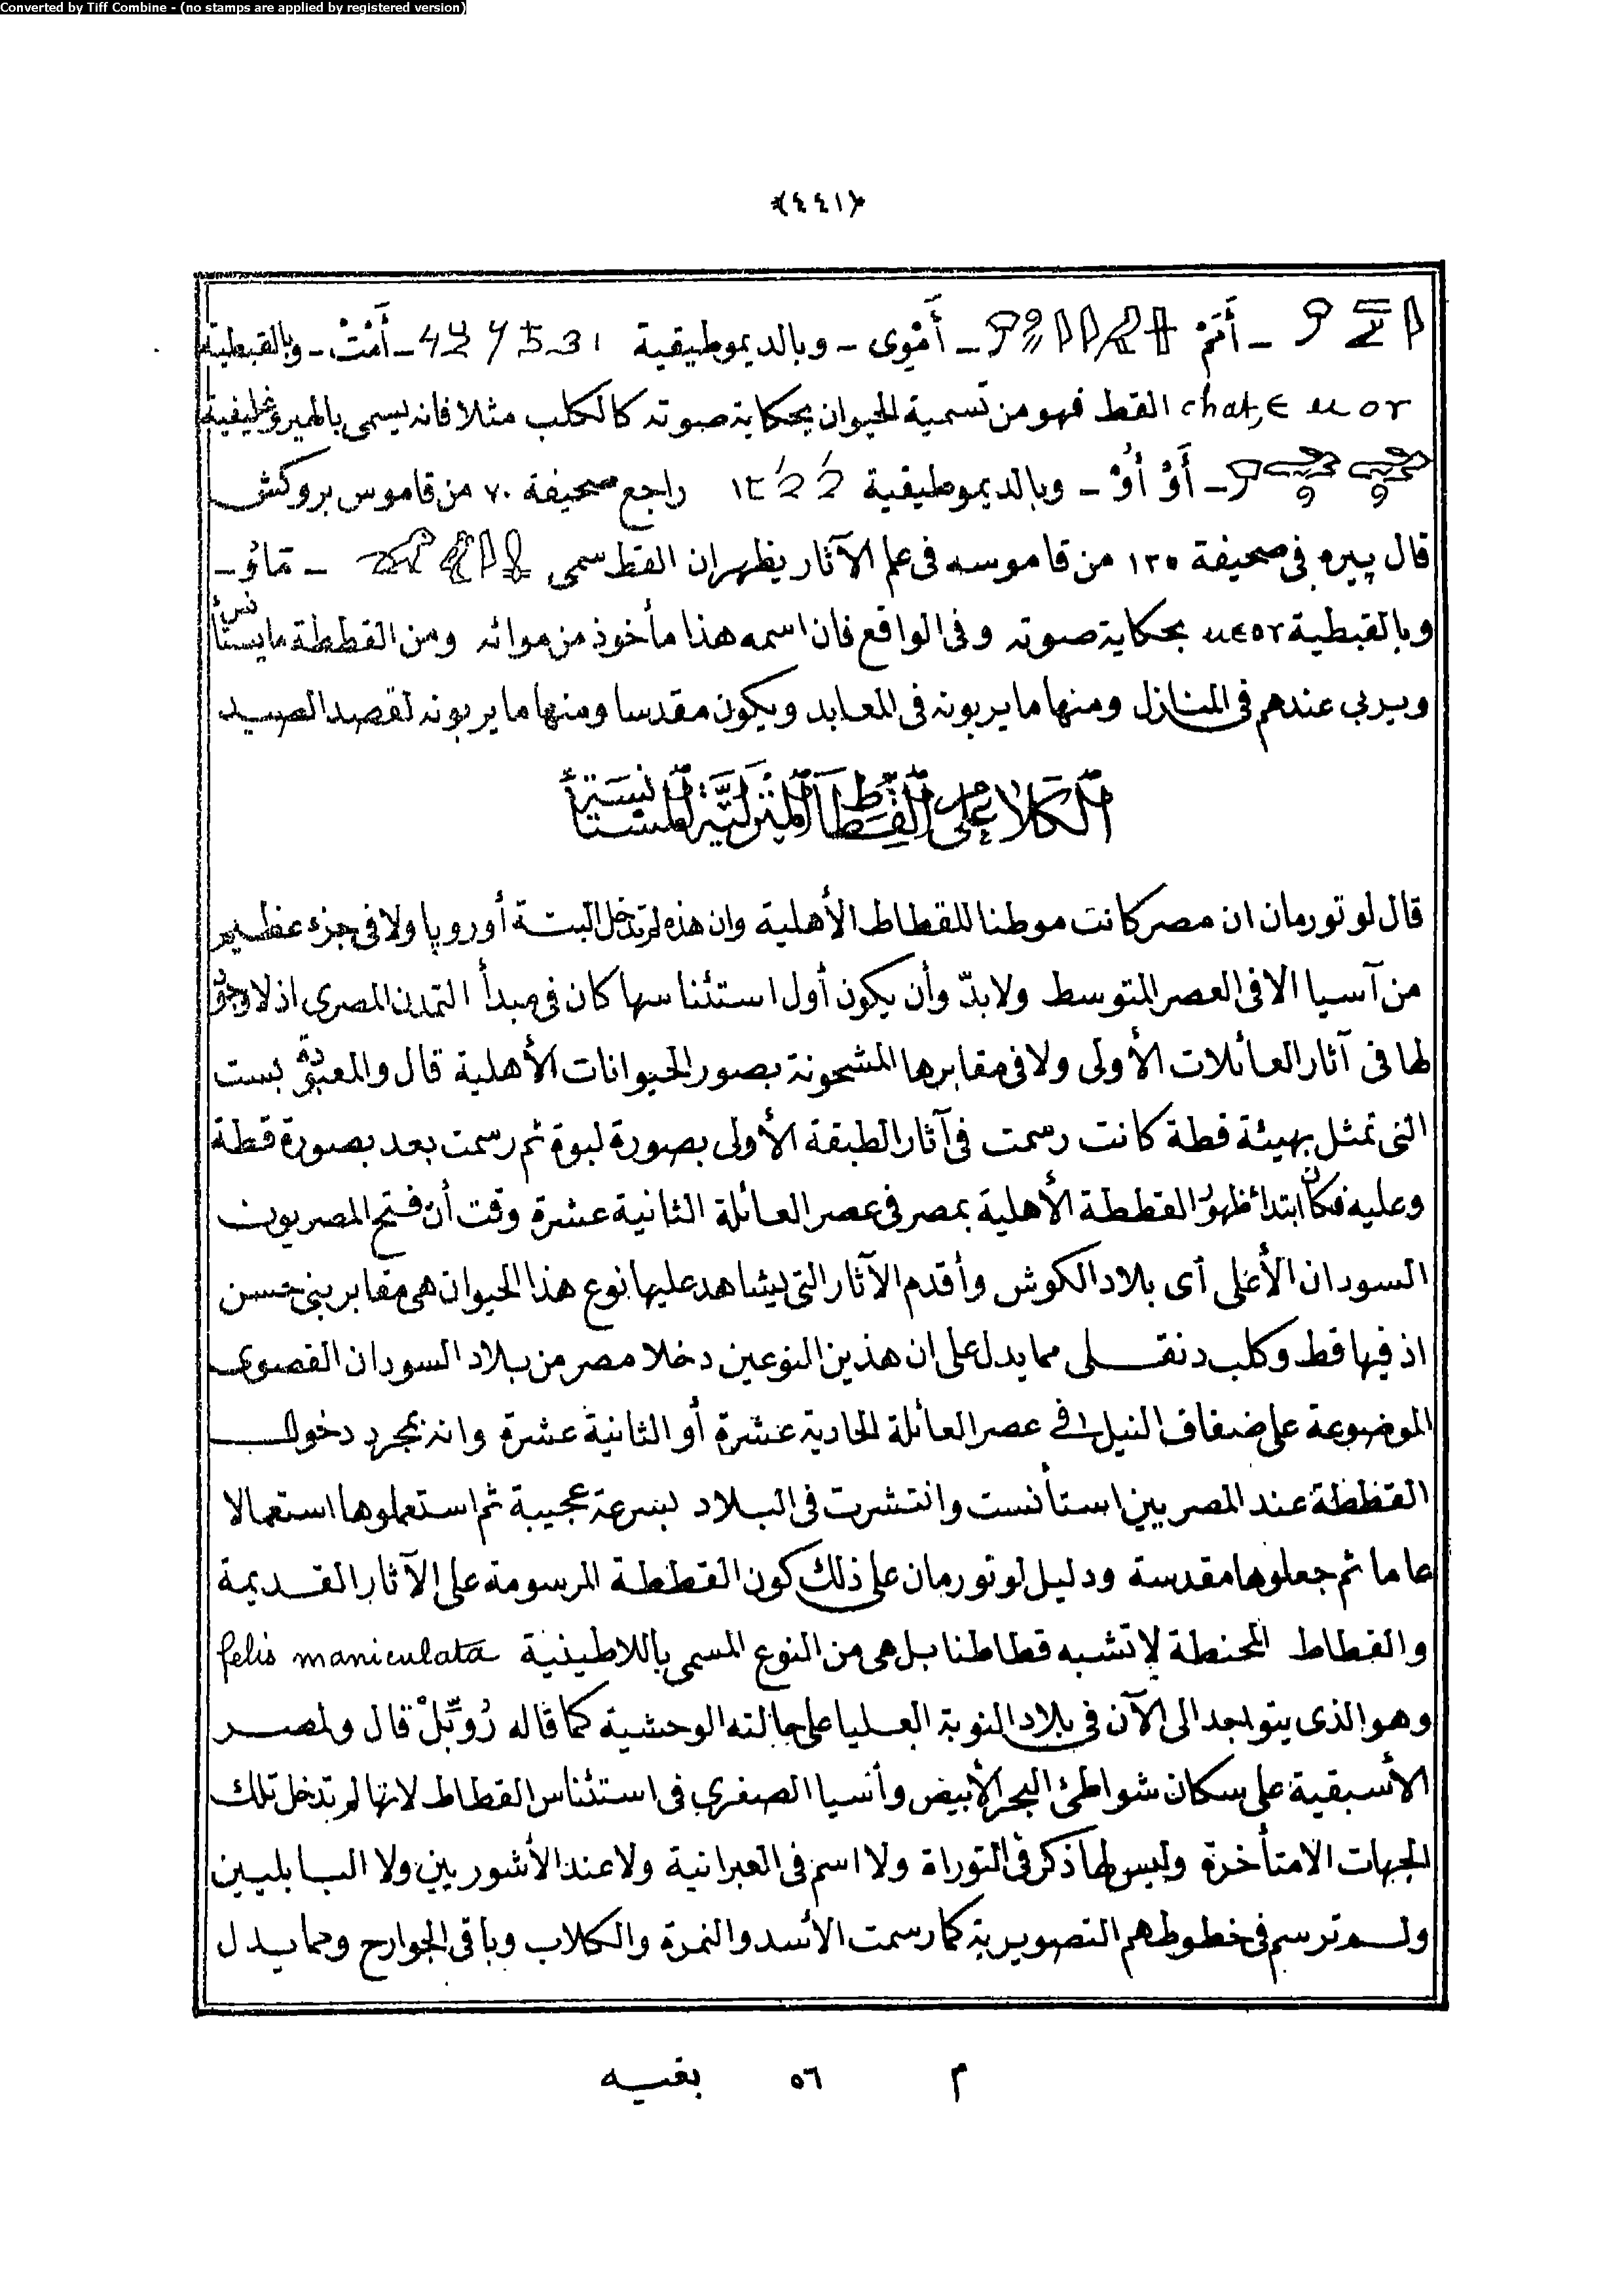 Converted by Tiff Combine - (no stamps are applied by registered version)
﴿٤٤١﴾
ـ أَتَمْ ـ أَمْوِى ـ وبالديموطيقية ـ أَمْتْ ـ وبالقبطية
chat, ⲉⲙⲟⲩ القط فهو من تسمية الحيوان بحكاية صوته كالكلب مثلا فانه يسمى بالهيروغليفية
ـ أَوْ أُوْ ـ وبالديموطيقية راجع صحيفة ٧٠ من قاموس بروكش
قال پيره فى صحيفة ١٣٥ من قاموسه فى علم الآثار يظهر ان القط سمى ـ مَائو ـ
وبالقبطية ⲙⲉⲟⲩ بحكاية صوته وفى الواقع فان اسمه هذا مأخوذ من موائه ومن القططة ما يستأنس
ويربى عندهم فى المنازل ومنها ما يربونه فى المعابد ويكون مقدسا ومنها ما يربونه لقصد الصيد
الكلام على القطط المنزلية المستأنسة
قال لو تورمان ان مصر كانت موطنا للقطاط الأهلية وان هذه لم تدخل البتة أوروپا ولا فى جزء عظيم
من آسيا الا فى العصر المتوسط ولا بدّ وأن يكون أول استئناسها كان فى مبدأ التمدن المصرى اذ لا وجود
لها فى آثار العائلات الأولى ولا فى مقابرها المشحونة بصور الحيوانات الأهلية قال والمعبودة بست
التى تمثل بهيئة قطة كانت رسمت فى آثار الطبقة الأولى بصورة لبوة ثم رسمت بعد بصورة قطة
وعليه فكان ابتداء ظهور القططة الأهلية بمصر فى عصر العائلة الثانية عشرة وقت أن فتح المصريون
السودان الأعلى أى بلاد الكوش وأقدم الآثار التى يشاهد عليها نوع هذا الحيوان هى مقابر بنى حسن
اذ فيها قط وكلب دنقلى مما يدل على ان هذين النوعين دخلا مصر من بلاد السودان القصوى
الموضوعة على ضفاف النيل فى عصر العائلة الحادية عشرة أو الثانية عشرة وانه بمجرد دخول
القططة عند المصريين استأنست وانتشرت فى البلاد بسرعة عجيبة ثم استعملوها استعمالا
عاما ثم جعلوها مقدسة ودليل لو تورمان على ذلك كون القططة المرسومة على الآثار القديمة
والقطاط المحنطة لا تشبه قطاطنا بل هى من النوع المسمى باللاطينية felis maniculata
وهو الذى يتواجد الى الآن فى بلاد النوبة العليا على حالته الوحشية كما قاله رُوپِّلْ قال ولمصر
الأسبقية على سكان شواطئ البحر الأبيض وأسيا الصغرى فى استئناس القطاط لانها لم تدخل تلك
الجهات الا متأخرة وليس لها ذكر فى التوراة ولا اسم فى العبرانية ولا عند الأشوريين ولا البابليين
ولم ترسم فى خطوطهم التصويرية كما رسمت الأسد والنمرة والكلاب وباقى الجوارح ومما يدل
م ٥٦ بقيه